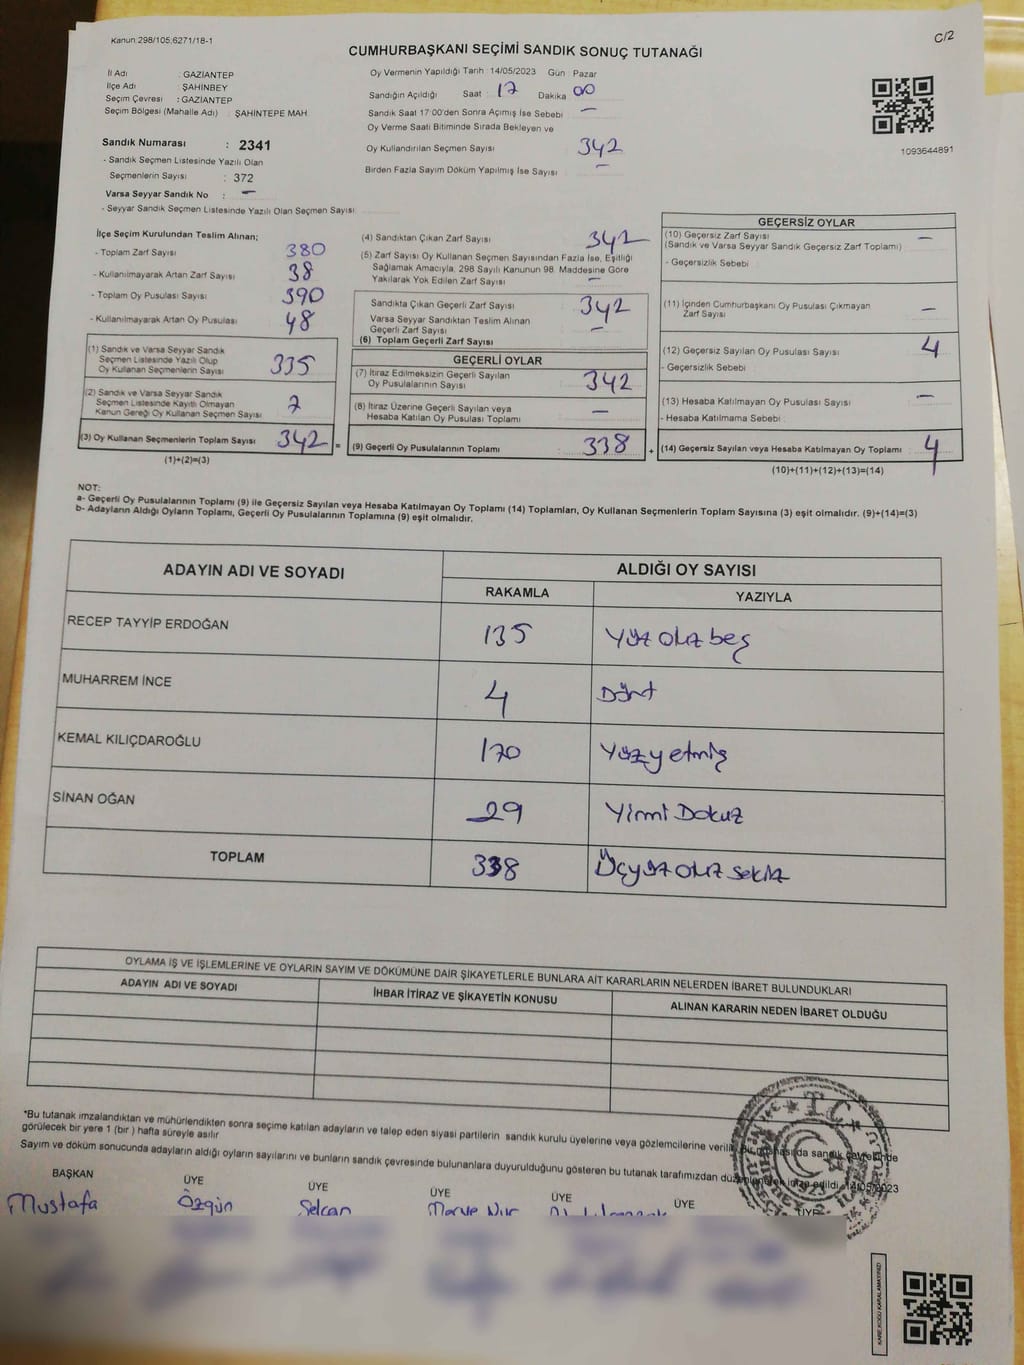 Kanun:298/105;6271/18-1
C/2
CUMHURBAŞKANI SEÇİMİ SANDIK SONUÇ TUTANAĞI
İl Adı : GAZİANTEP
İlçe Adı : ŞAHİNBEY
Seçim Çevresi : GAZİANTEP
Seçim Bölgesi (Mahalle Adı) : ŞAHİNTEPE MAH.
Sandık Numarası : 2341
- Sandık Seçmen Listesinde Yazılı Olan
Seçmenlerin Sayısı : 372
Varsa Seyyar Sandık No : -
- Seyyar Sandık Seçmen Listesinde Yazılı Olan Seçmen Sayısı:
Oy Vermenin Yapıldığı Tarih : 14/05/2023 Gün : Pazar
Sandığın Açıldığı Saat : 17 Dakika 00
Sandık Saat 17:00'den Sonra Açımış İse Sebebi -
Oy Verme Saati Bitiminde Sırada Bekleyen ve
Oy Kullandırılan Seçmen Sayısı 342
Birden Fazla Sayım Döküm Yapılmış İse Sayısı -
1093644891
İlçe Seçim Kurulundan Teslim Alınan;
- Toplam Zarf Sayısı 380
- Kullanılmayarak Artan Zarf Sayısı 38
- Toplam Oy Pusulası Sayısı 390
- Kullanılmayarak Artan Oy Pusulası 48
(1) Sandık ve Varsa Seyyar Sandık
Seçmen Listesinde Yazılı Olup
Oy Kullanan Seçmenlerin Sayısı 335
(2) Sandık ve Varsa Seyyar Sandık
Seçmen Listesinde Kayıtlı Olmayan
Kanun Gereği Oy Kullanan Seçmen Sayısı 7
(3) Oy Kullanan Seçmenlerin Toplam Sayısı 342 =
(1)+(2)=(3)
(4) Sandıktan Çıkan Zarf Sayısı 342
(5) Zarf Sayısı Oy Kullanan Seçmen Sayısından Fazla İse, Eşitliği
Sağlamak Amacıyla, 298 Sayılı Kanunun 98. Maddesine Göre
Yakılarak Yok Edilen Zarf Sayısı -
Sandıkta Çıkan Geçerli Zarf Sayısı 342
Varsa Seyyar Sandıktan Teslim Alınan
Geçerli Zarf Sayısı -
(6) Toplam Geçerli Zarf Sayısı
GEÇERLİ OYLAR
(7) İtiraz Edilmeksizin Geçerli Sayılan
Oy Pusulalarının Sayısı 342
(8) İtiraz Üzerine Geçerli Sayılan veya
Hesaba Katılan Oy Pusulası Toplamı -
(9) Geçerli Oy Pusulalarının Toplamı 338 +
GEÇERSİZ OYLAR
(10) Geçersiz Zarf Sayısı -
(Sandık ve Varsa Seyyar Sandık Geçersiz Zarf Toplamı)
- Geçersizlik Sebebi :
(11) İçinden Cumhurbaşkanı Oy Pusulası Çıkmayan
Zarf Sayısı -
(12) Geçersiz Sayılan Oy Pusulası Sayısı 4
- Geçersizlik Sebebi :
(13) Hesaba Katılmayan Oy Pusulası Sayısı -
- Hesaba Katılmama Sebebi :
(14) Geçersiz Sayılan veya Hesaba Katılmayan Oy Toplamı 4
(10)+(11)+(12)+(13)=(14)
NOT:
a- Geçerli Oy Pusulalarının Toplamı (9) ile Geçersiz Sayılan veya Hesaba Katılmayan Oy Toplamı (14) Toplamları, Oy Kullanan Seçmenlerin Toplam Sayısına (3) eşit olmalıdır. (9)+(14)=(3)
b- Adayların Aldığı Oyların Toplamı, Geçerli Oy Pusulalarının Toplamına (9) eşit olmalıdır.
ADAYIN ADI VE SOYADI
ALDIĞI OY SAYISI
RAKAMLA YAZIYLA
RECEP TAYYİP ERDOĞAN 135 Yüz otuz beş
MUHARREM İNCE 4 Dört
KEMAL KILIÇDAROĞLU 170 Yüzyetmiş
SİNAN OĞAN 29 Yirmi Dokuz
TOPLAM 338 Üçyüz otuz sekiz
OYLAMA İŞ VE İŞLEMLERİNE VE OYLARIN SAYIM VE DÖKÜMÜNE DAİR ŞİKAYETLERLE BUNLARA AİT KARARLARIN NELERDEN İBARET BULUNDUKLARI
ADAYIN ADI VE SOYADI İHBAR İTİRAZ VE ŞİKAYETİN KONUSU ALINAN KARARIN NEDEN İBARET OLDUĞU
*Bu tutanak imzalandıktan ve mühürlendikten sonra seçime katılan adayların ve talep eden siyasi partilerin sandık kurulu üyelerine veya gözlemcilerine verilir. Bir nüshası da sandık çevresinde
görülecek bir yere 1 (bir) hafta süreyle asılır.
Sayım ve döküm sonucunda adayların aldığı oyların sayılarını ve bunların sandık çevresinde bulunanlara duyurulduğunu gösteren bu tutanak tarafımızdan düzenlenerek imza edildi. 14/05/2023
BAŞKAN ÜYE ÜYE ÜYE ÜYE ÜYE ÜYE
Mustafa Özgün Selcan Merve Nur
T.C.
KARE KODU KARALAMAYINIZ